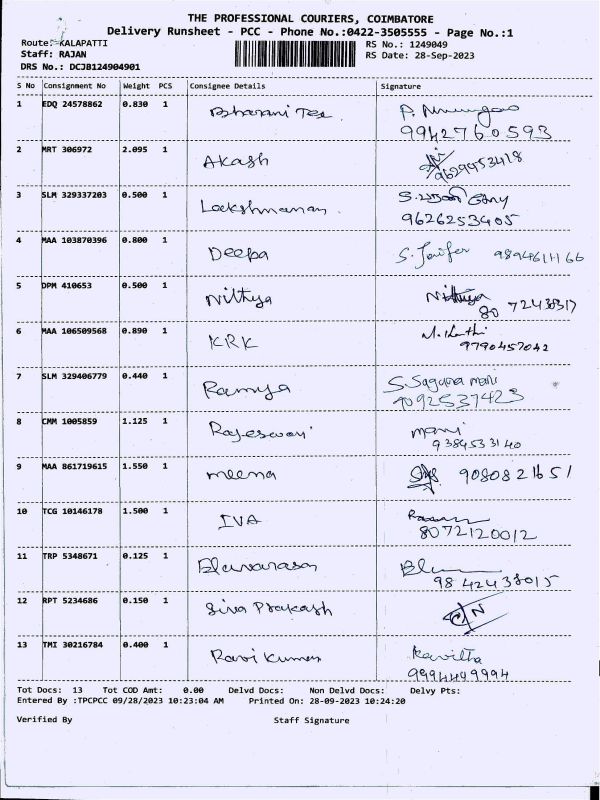 THE PROFESSIONAL COURIERS, COIMBATORE
Delivery Runsheet - PCC - Phone No.:0422-3505555 - Page No.:1
Route: KALAPATTI RS No.: 1249049
Staff: RAJAN RS Date: 28-Sep-2023
DRS No.: DCJB124904901
S No Consignment No Weight PCS Consignee Details Signature
1 EDQ 24578862 0.830 1 Bharani Tex
9942760593
2 MRT 306972 2.095 1 Akash 9629953418
3 SLM 329337203 0.500 1 Lakshmanan
9626253405
4 MAA 103870396 0.800 1 Deepa S.
5 DPM 410653 0.500 1 Nithya Nithiya
80
6 MAA 106509568 0.890 1 KRK
9790457042
7 SLM 329406779 0.440 1 Ramya S. Saguna mari
9092537423
8 CMM 1005859 1.125 1 Rajeswari mani
9384533140
9 MAA 861719615 1.550 1 meena 9080821651
10 TCG 10146178 1.500 1 IVA
8072120012
11 TRP 5348671 0.125 1 Elavarasan
9842433015
12 RPT 5234686 0.150 1 Siva Prakash
13 TMI 30216784 0.400 1 Ravi Kumar Kavitha
9994449994
Tot Docs: 13 Tot COD Amt: 0.00 Delvd Docs: Non Delvd Docs: Delvy Pts:
Entered By :TPCPCC 09/28/2023 10:23:04 AM Printed On: 28-09-2023 10:24:20
Verified By Staff Signature